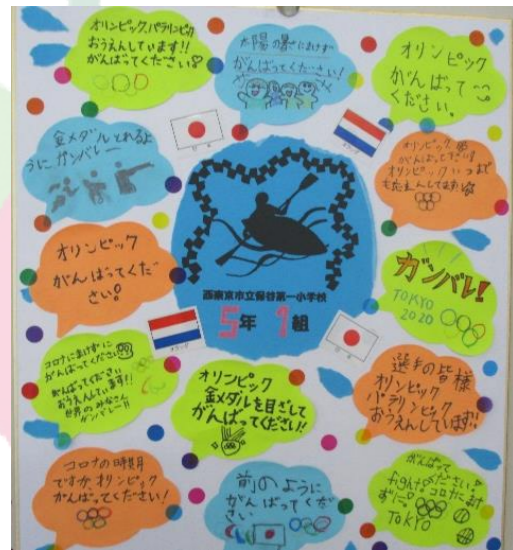 オリンピック、パラリンピック
おうえんしています!!
がんばってください
太陽の暑さにまけず
がんばってください!
オリンピック
がんばって
ください。
金メダルとれるよ
うにガンバレー
オリンピック
がんばってください
オリンピックいつまで
も応えんしてます
オリンピック
がんばってくだ
さい。
西東京市立保谷第一小学校
5年1組
ガンバレ!
TOKYO
2020
コロナにまけずに
がんばってください
がんばってください
おうえんしています!!
世界のみなさん
ガンバレー!!
オリンピック
金メダルを目ざして
がんばってください!
選手の皆様
オリンピック
パラリンピック
おうえんしています!!
コロナの時期
ですがオリンピック
がんばってください!
前のように
がんばってくだ
さい
がんばって
ください
fight!
コロナにまけ
ずに
TOKYO